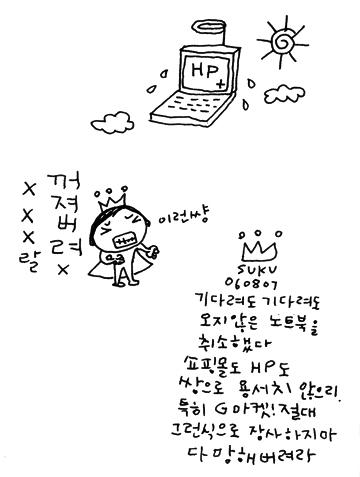 HP
꺼
져
버
려
x
x
x
x
랄
이런썅
SUKU
060807
기다려도 기다려도
오지않은 노트북을
취소했다
쇼핑몰도 HP도
쌍으로 용서치 않으리
특히 G마켓! 절대
그런식으로 장사하지마
다 망해버려라